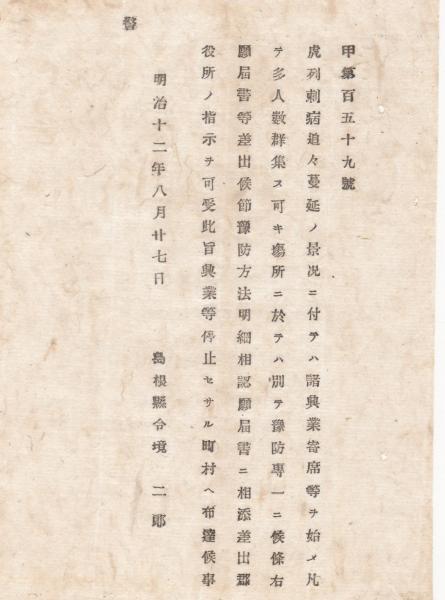 甲第百五十九號
虎列刺病追々蔓延ノ景况ニ付テハ諸興業寄席等ヲ始メ凡
テ多人數群集ス可キ塲所ニ於テハ別テ豫防專一ニ候條右
願届書等差出候節豫防方法明細相認願届書ニ相添差出郡
役所ノ指示ヲ可受此旨興業等停止セサル町村ヘ布達候事
明治十二年八月廿七日 島根縣令境 二郎
警